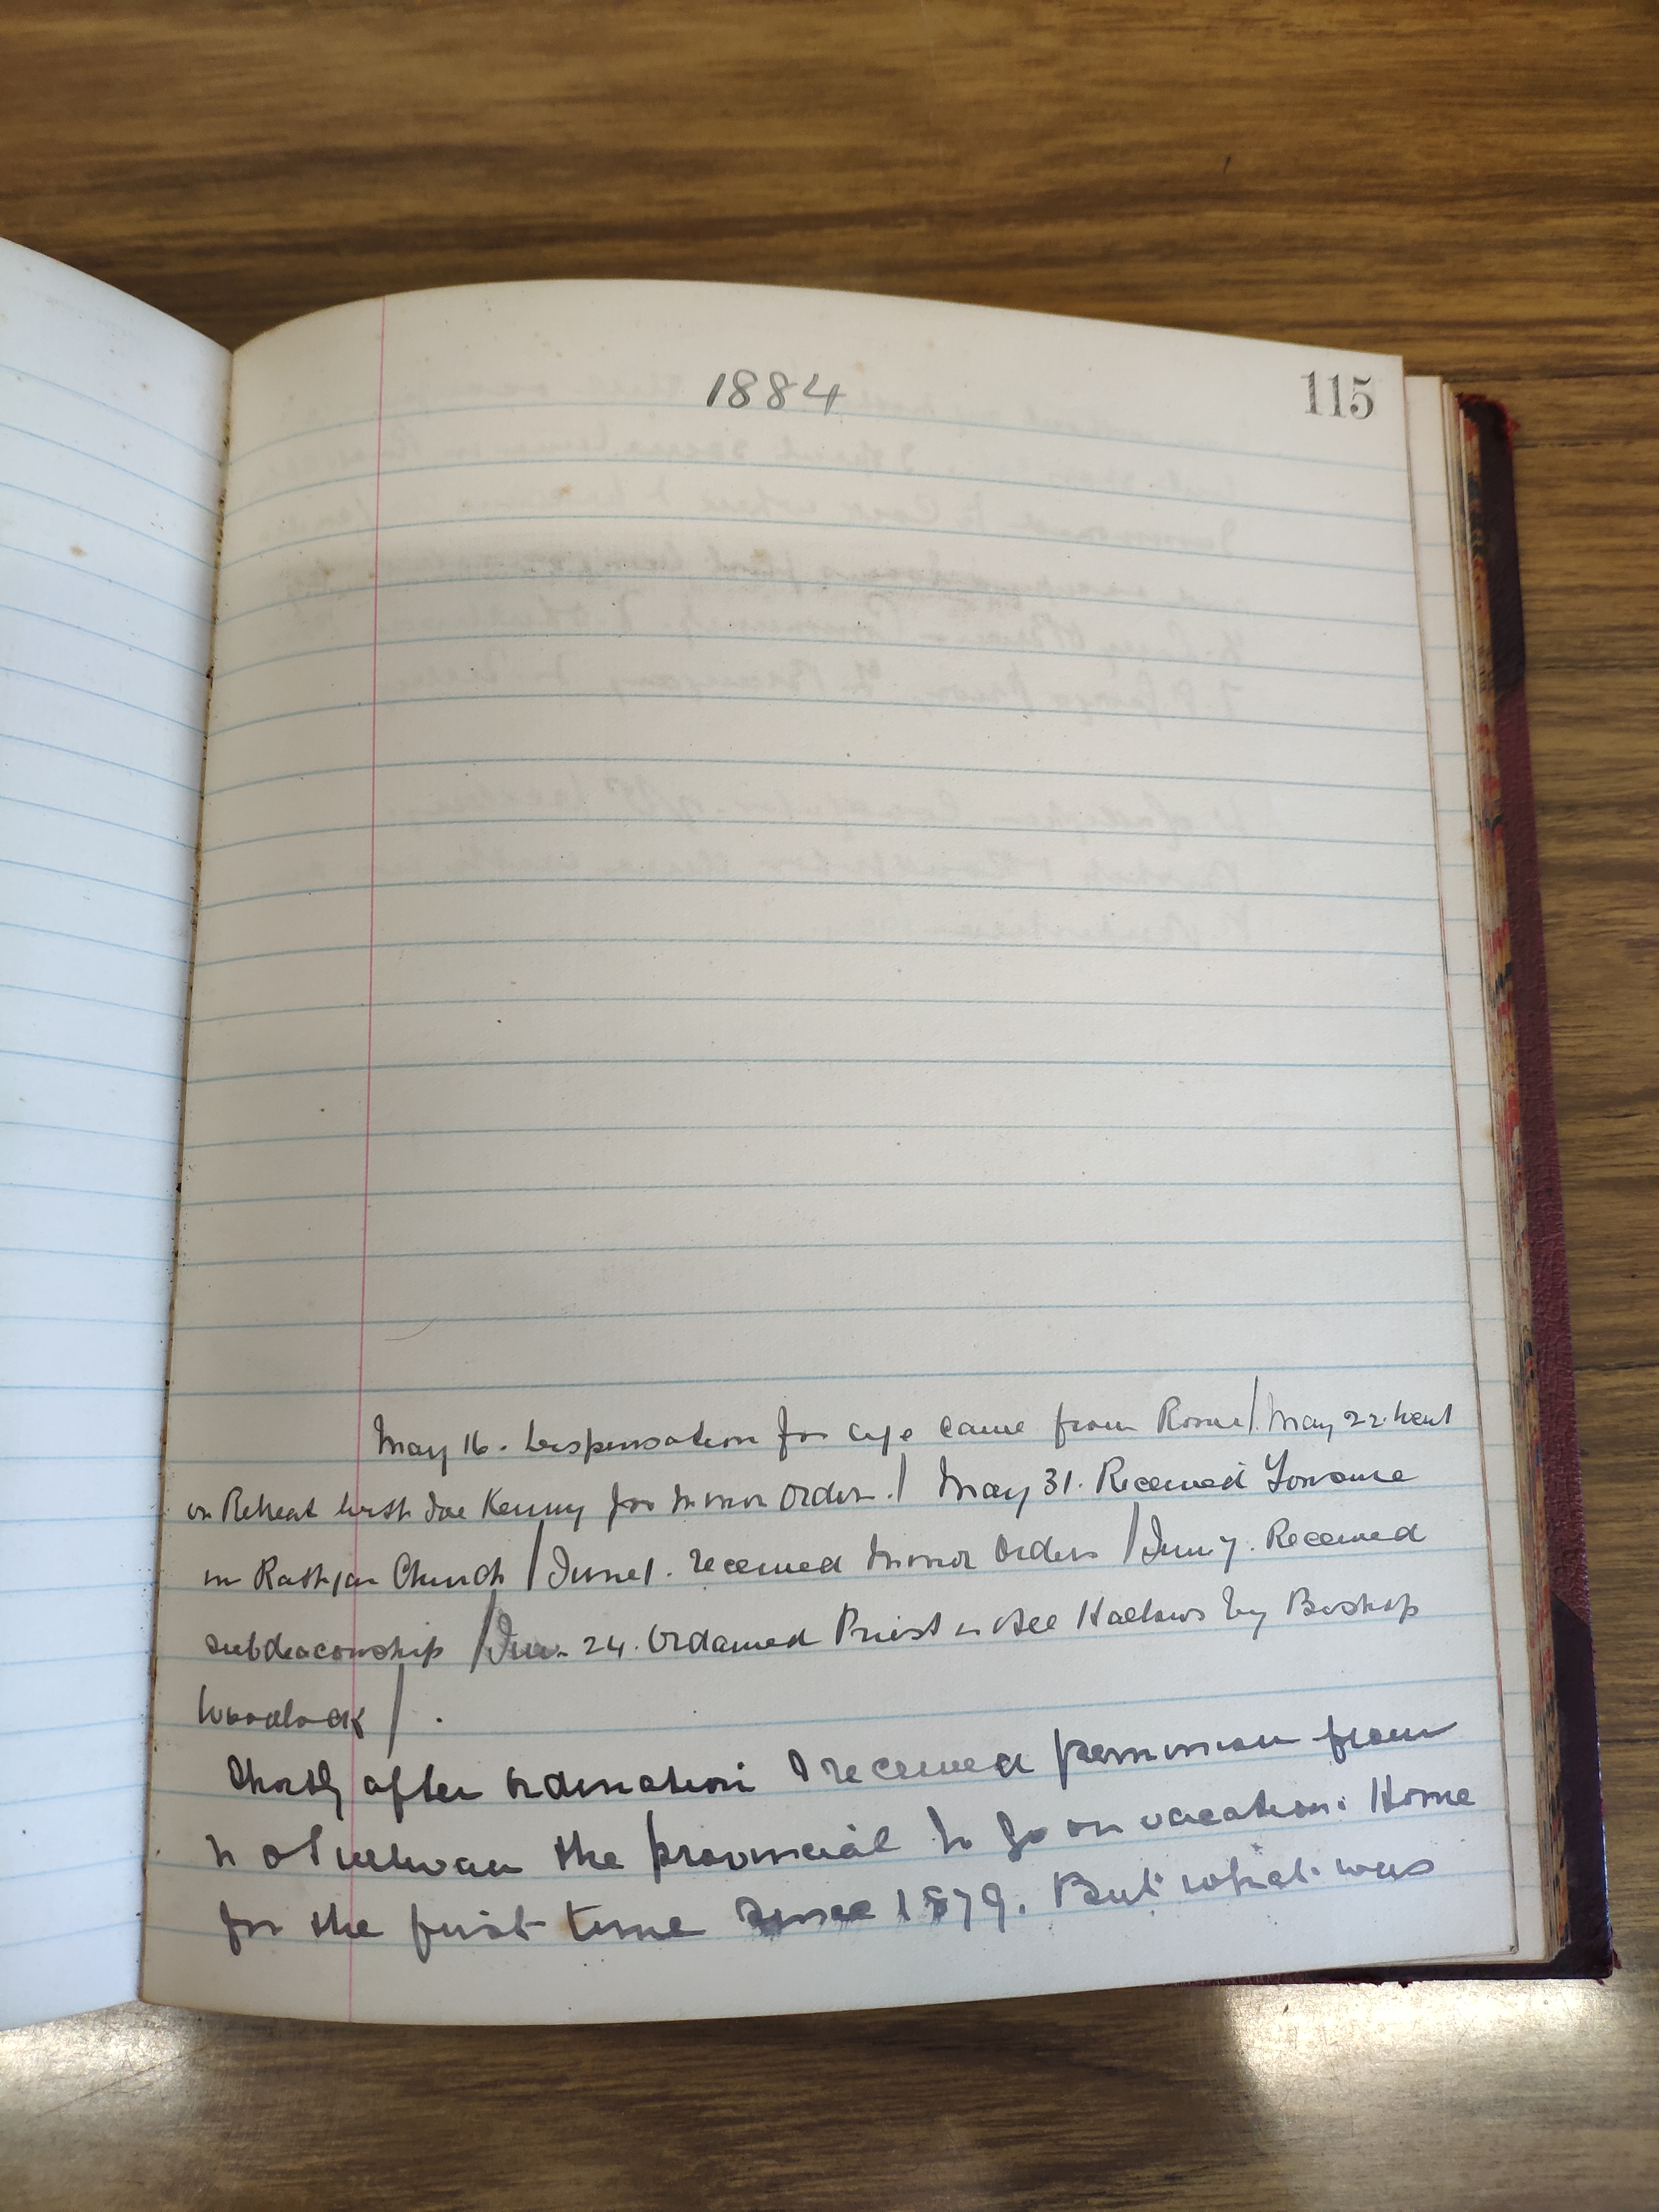 1884
115
May 16. Dispensation for age came from Rome/. May 22. Went
on Retreat with Joe Kenny for Minor Orders. / May 31. Received Tonsure
in Rathgar Church / June 1. received Minor Orders / June 7. Received
subdeaconship / June 24. Ordained Priest in All Hallows by Bishop
Woodlock / .
Shortly after ordination I received permission from
the provincial to go on vacation. Home
for the first time since 1879. But what was